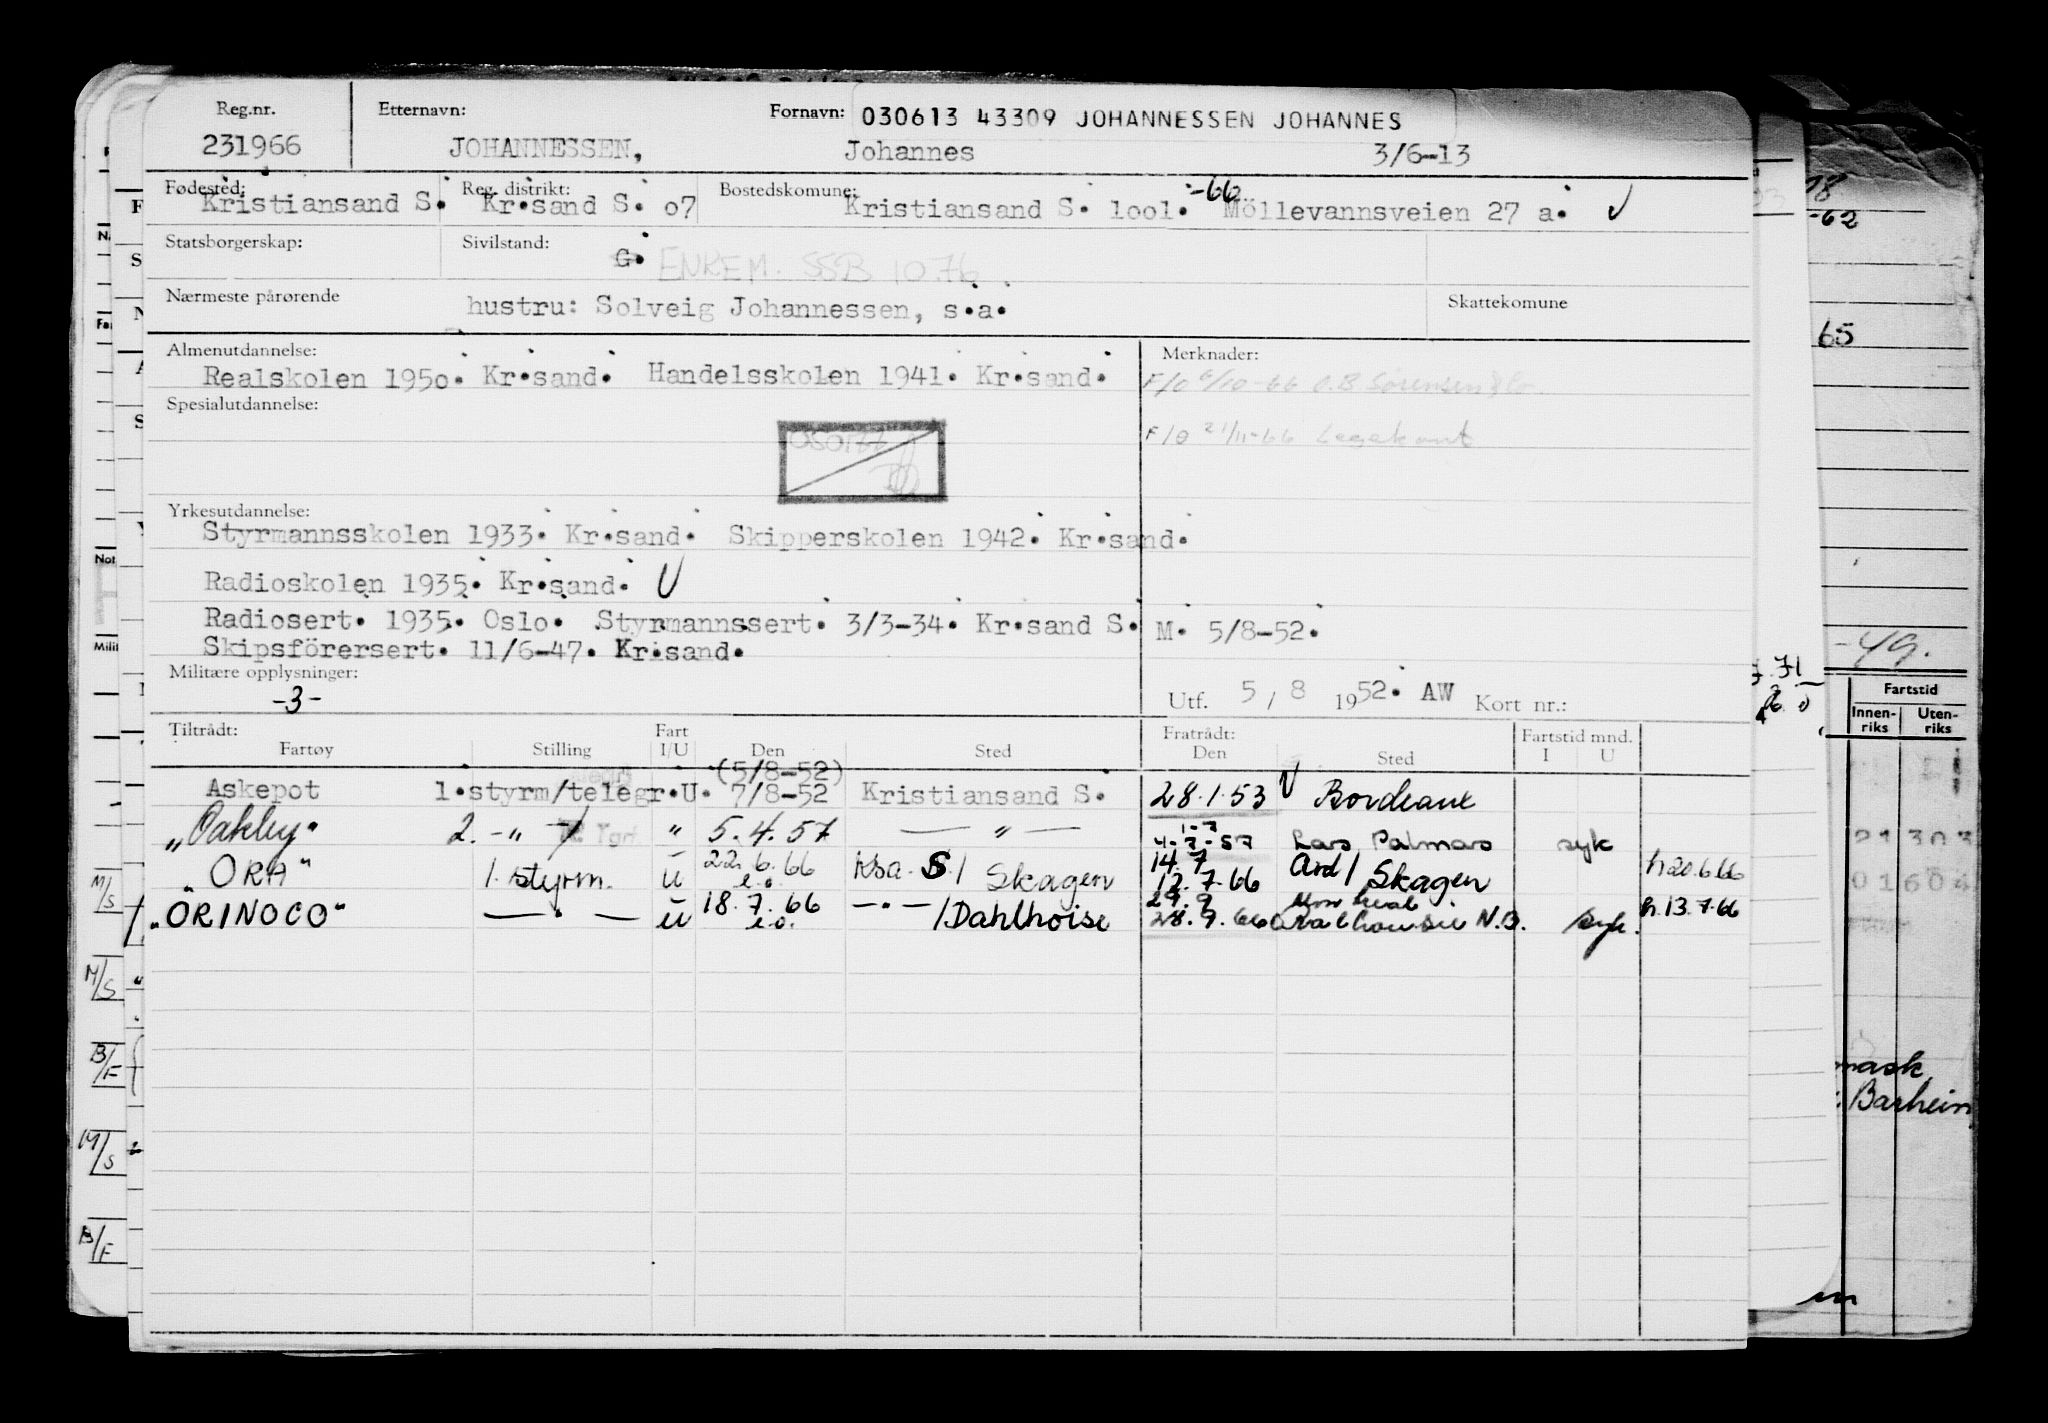 Reg.nr. Etternavn: Fornavn: 030613 43309 JOHANNESSEN JOHANNES
231966 JOHANNESSEN, Johannes 3/6-13
Fødested: Reg. distrikt: Bostedskomune: -66
Kristiansand S. Kr.sand S. 07 Kristiansand S. 1001. Möllevannsveien 27 a. V
Statsborgerskap: Sivilstand:
G. ENKEM. SSB 10.76
Nærmeste pårørende hustru: Solveig Johannessen, s.a. Skattekomune
Almenutdannelse: Merknader:
Realskolen 1950. Kr.sand. Handelsskolen 1941. Kr.sand. F/O 6/10-66 O.B Sørensen & Co.
Spesialutdannelse:
050177 F/O 21/11-66
Yrkesutdannelse:
Styrmannsskolen 1933. Kr.sand. Skipperskolen 1942. Kr.sand.
Radioskolen 1935. Kr.sand. V
Radiosert. 1935. Oslo. Styrmannssert. 3/3-34. Kr.sand S. M. 5/8-52.
Skipsförersert. 11/6-47. Kr.sand.
Militære opplysninger:
-3- Utf. 5 / 8 1952. AW Kort nr.:
Tiltrådt: Fart Fratrådt: Fartstid mnd.
Fartøy Stilling I/U Den Sted Den Sted I U
(5/8-52)
Askepot 1.styrm/telegr. U. 7/8-52 Kristiansand S. 28.1.53 V Bordeaux
"Oakley" 2. -"- " 5.4.57 — " — 4-7-57 Las Palmas syk
"ORA" 1. styrm. U 22.6.66 e.o. Krsa. S./Skagen 14.7 12.7.66 Ard/Skagen h 20.6.66
"ORINOCO" — " — U 18.7.66 e.o. -"- /Dahlhoise 29.9 28.9.66 Montreal Dalhousie N.B. syk. h.13.7.66
-62
65
-49.
71
Fartstid
Innen-riks Uten-riks
21303
mask
Barhein
M/S
M/S
B/F
M/S
B/F